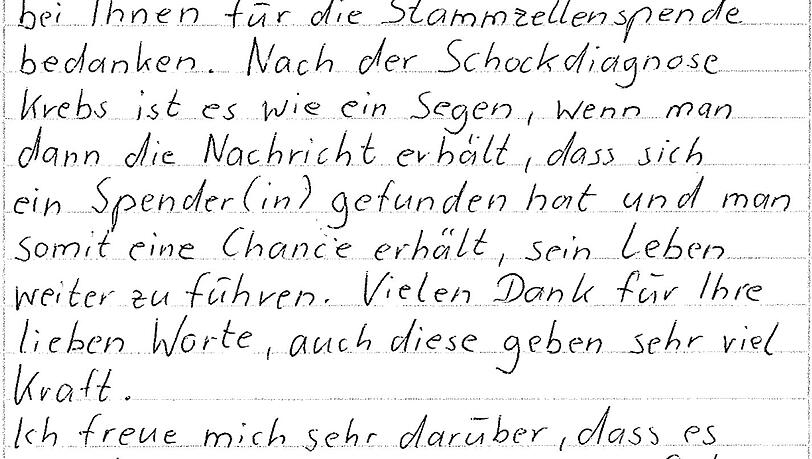 bei Ihnen für die Stammzellenspende
bedanken. Nach der Schockdiagnose
Krebs ist es wie ein Segen, wenn man
dann die Nachricht erhält, dass sich
ein Spender(in) gefunden hat und man
somit eine Chance erhält, sein Leben
weiter zu führen. Vielen Dank für Ihre
lieben Worte, auch diese geben sehr viel
Kraft.
Ich freue mich sehr darüber, dass es